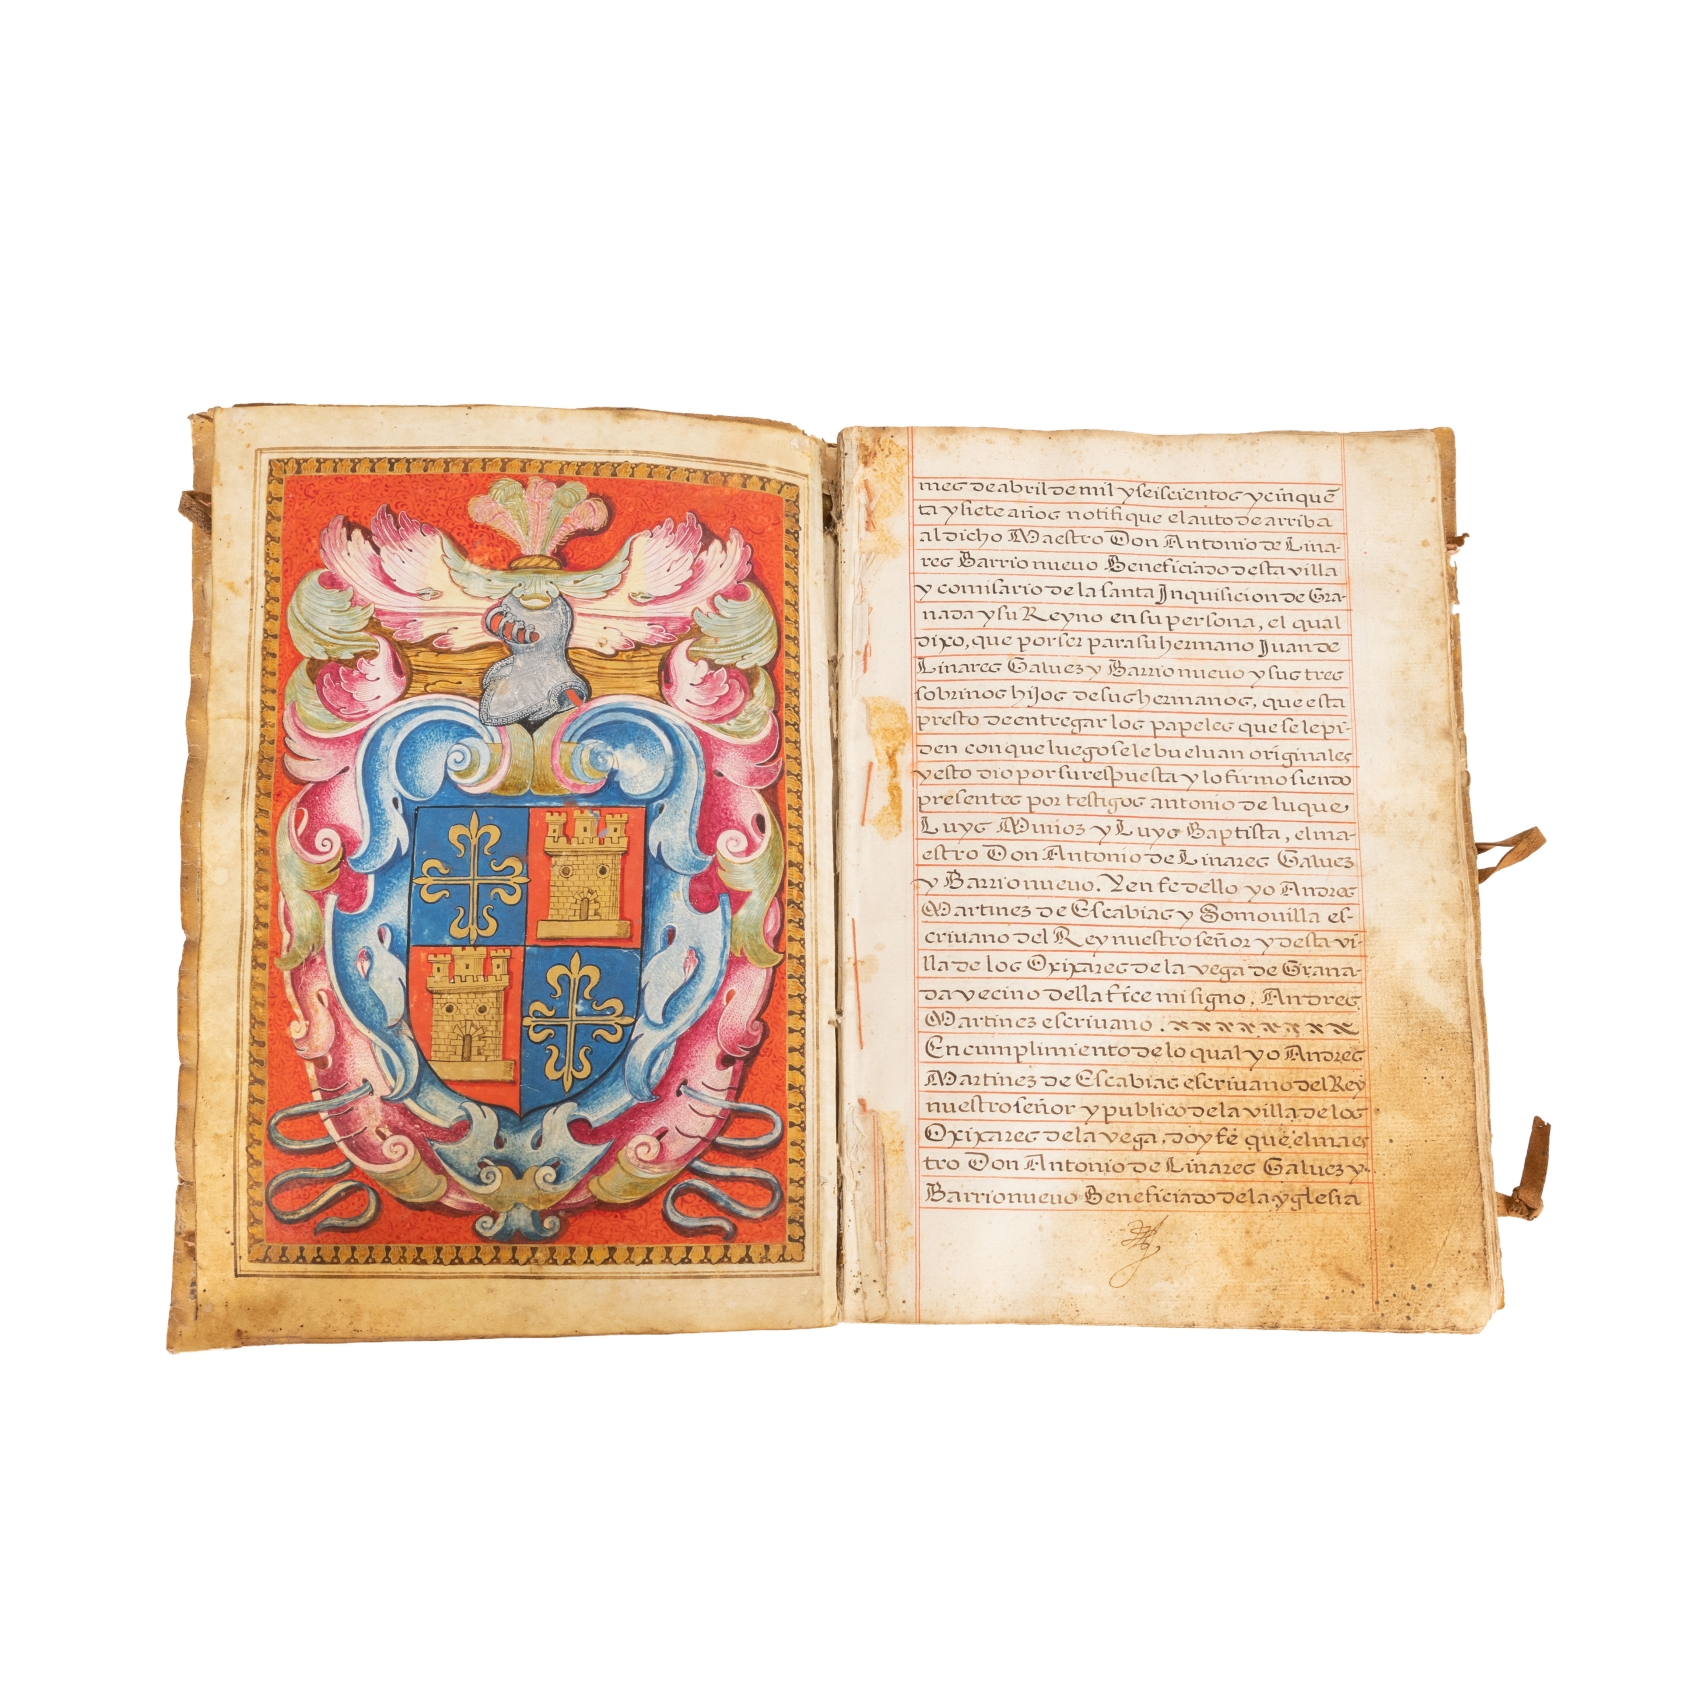 mes de abril de mil y seiscientos y cinquē
ta y siete años notifique el auto de arriba
al dicho Maestro Don Antonio de Lina-
res Barrionuevo Beneficiado desta villa
y comisario de la santa Inquisicion de Gra-
nada y su Reyno en su persona, el qual
dixo, que por ser para su hermano Juan de
Linares Galuez y Barrionuevo y sus tres
sobrinos hijos de sus hermanos, que esta
presto de entregar los papeles que se le pi-
den con que luego se le bueluan originales
y esto dio por su respuesta y lo firmo siendo
presentes por testigos antonio de luque,
Luys Muñoz y Luys Baptista, el ma-
estro Don Antonio de Linares Galuez
y Barrionuevo. Y en fe dello yo Andres
Martinez de Escabias y Somouilla es-
criuano del Rey nuestro señor y desta vi-
lla de los Oxixares de la vega de Grana-
da vecino della fice mi signo, Andres
Martinez escriuano.
En cumplimiento de lo qual yo Andres
Martinez de Escabias escriuano del Rey
nuestro señor y publico de la villa de los
Oxixares de la vega, doy fē que el maes
tro Don Antonio de Linares Galuez y
Barrionuevo Beneficiado de la yglesia